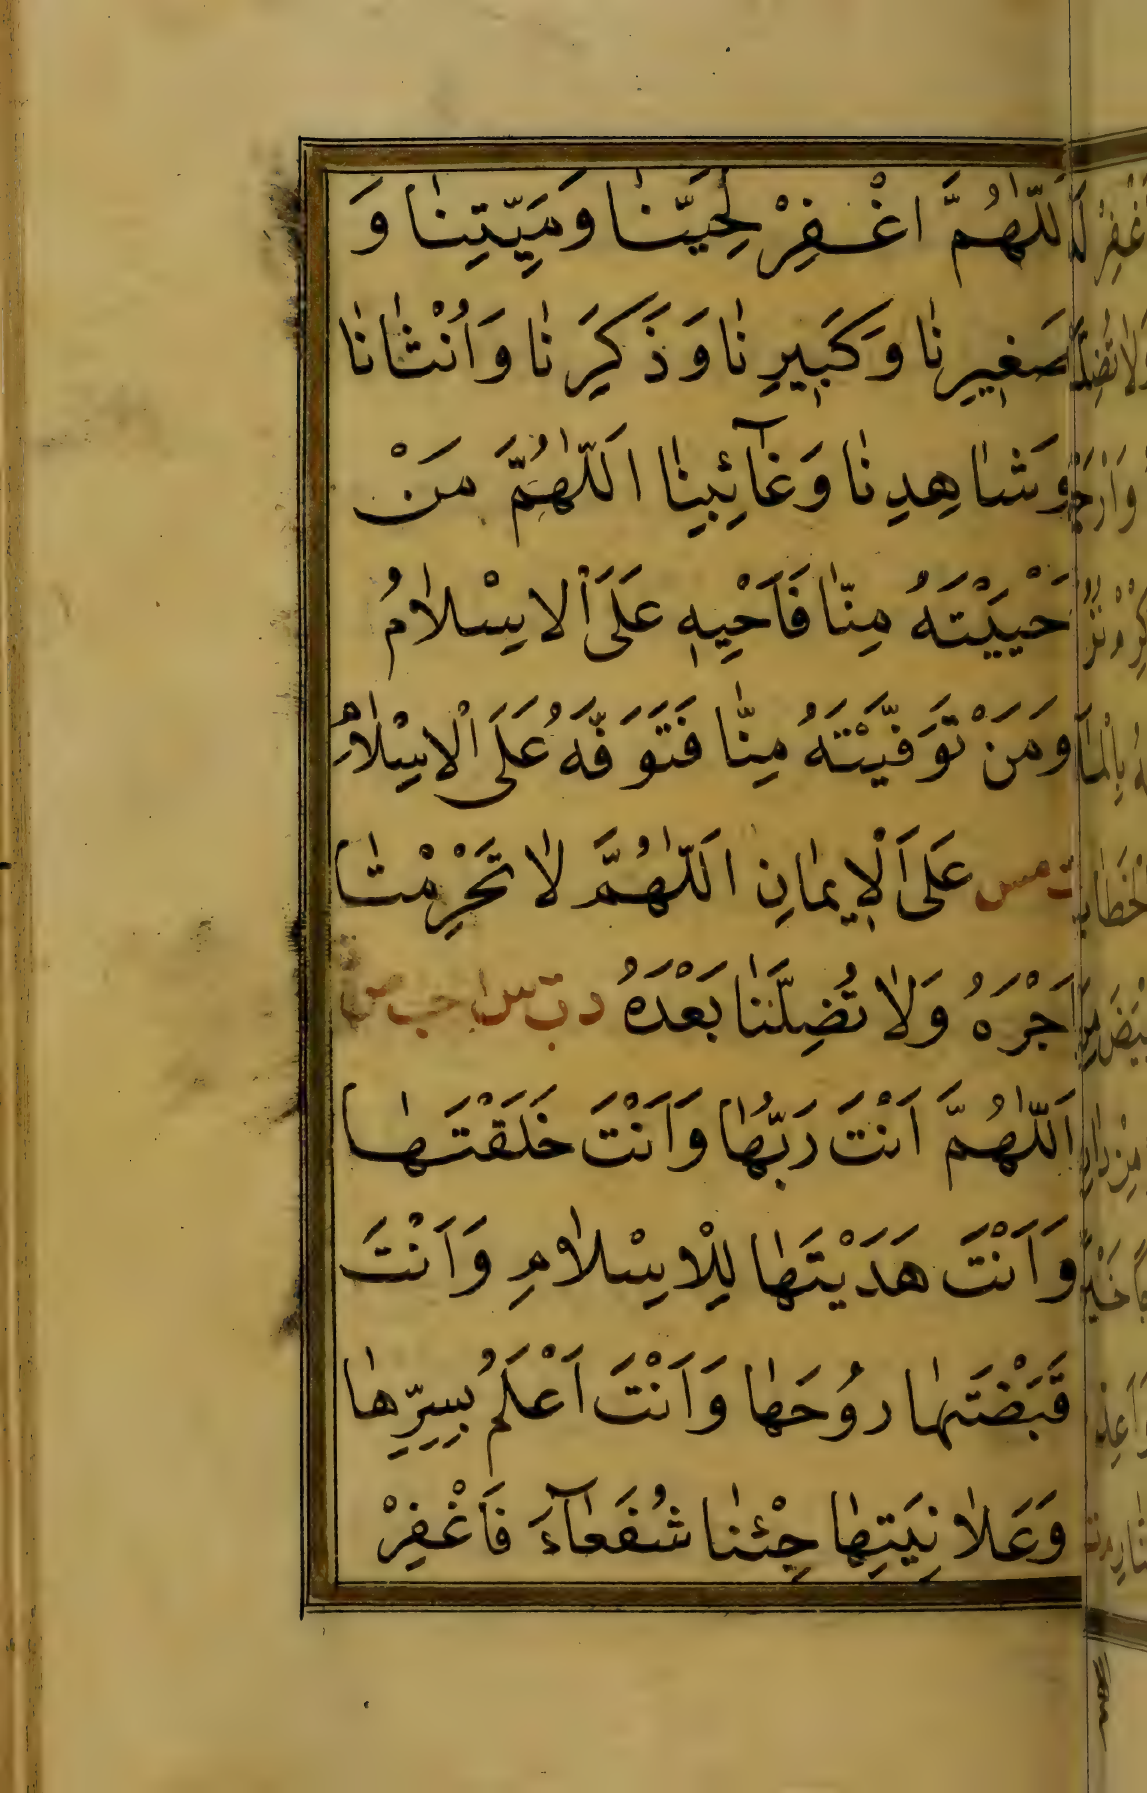 اَللّٰهُمَّ اغْفِرْ لِحَيِّنٰا وَمَيِّتِنٰا وَ
صَغيرِنٰا وَكَبيرِنٰا وَذَكَرِنٰا وَاُنْثٰانٰا
وَشٰاهِدِنٰا وَغٰآئِبِنٰا اَللّٰهُمَّ مَنْ
اَحْيَيْتَهُ مِنّٰا فَاَحْيِهِ عَلَى الْاِسْلٰامُ
وَمَنْ تَوَفَّيْتَهُ مِنّٰا فَتَوَفَّهُ عَلَى الْاِسْلٰامِ
ت مس عَلَى اَلْاِيمٰانِ اَللّٰهُمَّ لٰا تَحْرِمْنٰا
اَجْرَهُ وَلٰا تُضِلَّنٰا بَعْدَهُ د ت س ا حب ص
اَللّٰهُمَّ اَنْتَ رَبُّهٰا وَاَنْتَ خَلَقْتَهٰا
وَاَنْتَ هَدَيْتَهٰا لِلْاِسْلٰامِ وَاَنْتَ
قَبَضْتَهٰا رُوُحَهٰا وَاَنْتَ اَعْلَمُ بِسِرِّهٰا
وَعَلٰانِيَتِهٰا جِئْنٰا شُفَعٰآءَ فَاَغْفِرْ